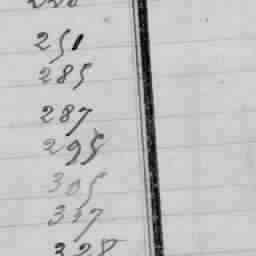 251
285
287
295
305
337
328